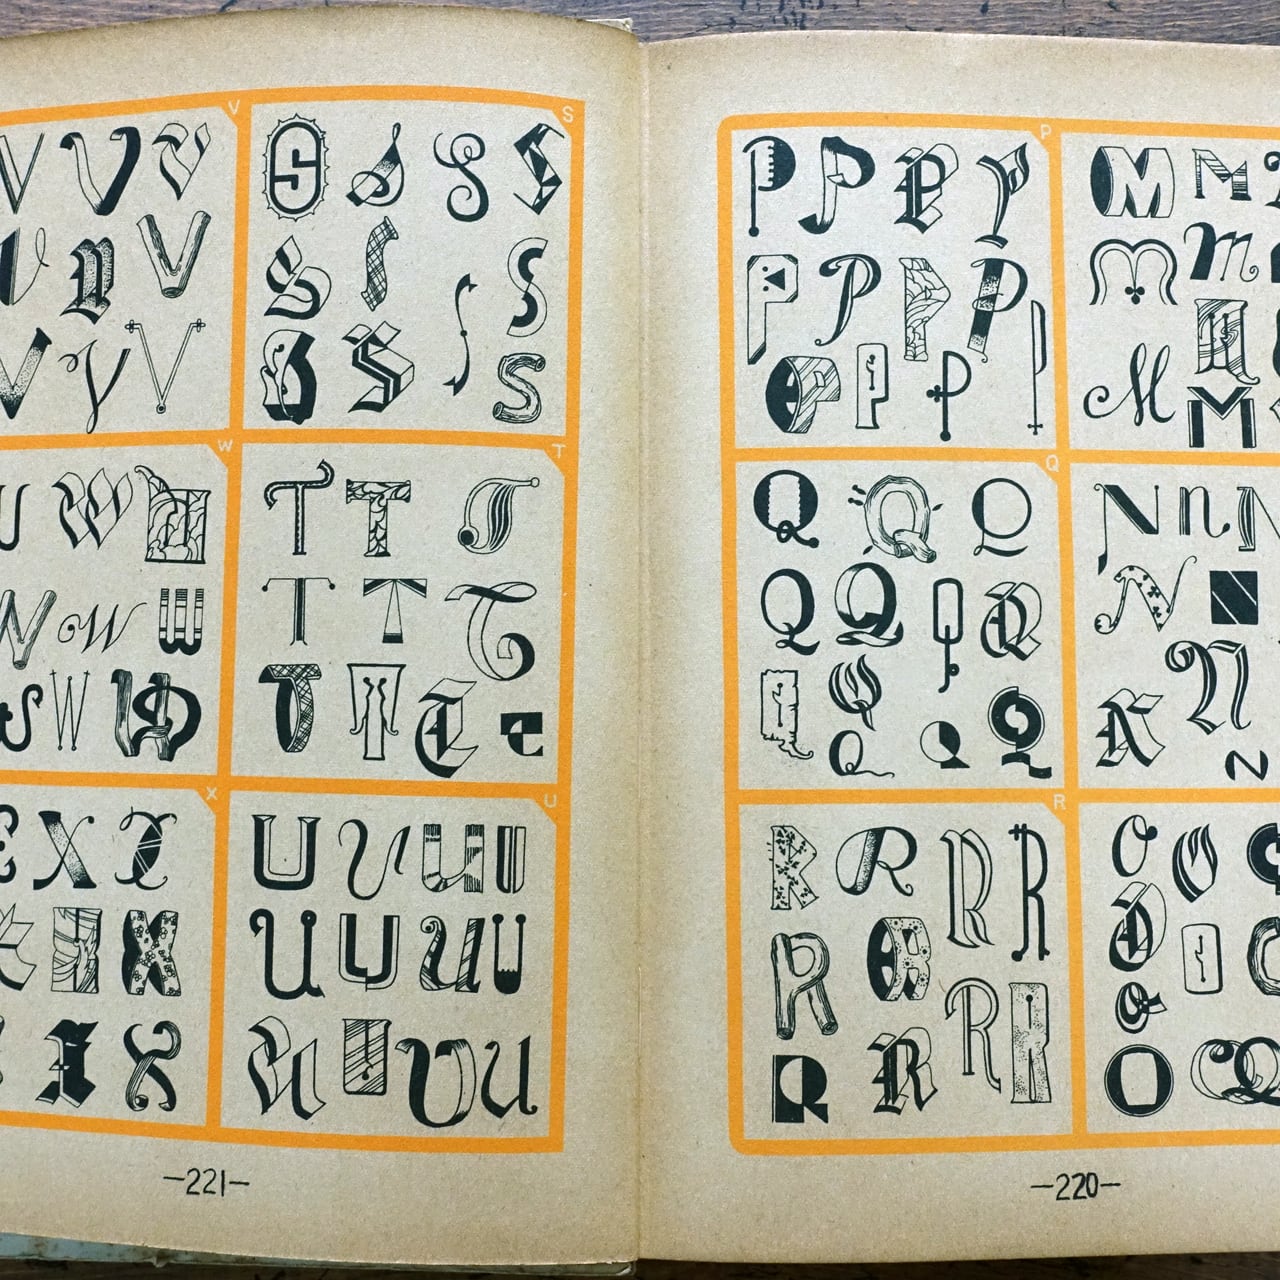 M M
M m
M
M M
N n N
N N
N N
N
O O
O
O O
O
O O
P
P P P P
P P P P
P P P P
Q
Q Q Q
Q Q Q Q
Q Q Q Q
Q
R
R R R R
R R
R R
R R
—220—
S
S S S S
S S S S
S S S
T
T T T
T T T
T T T T
U
U U U U
U U U U
U U U U
V
V V V
V V V
V V V
W
W W W
W W W
W W W
X
X X X
X X X
X X
—221—